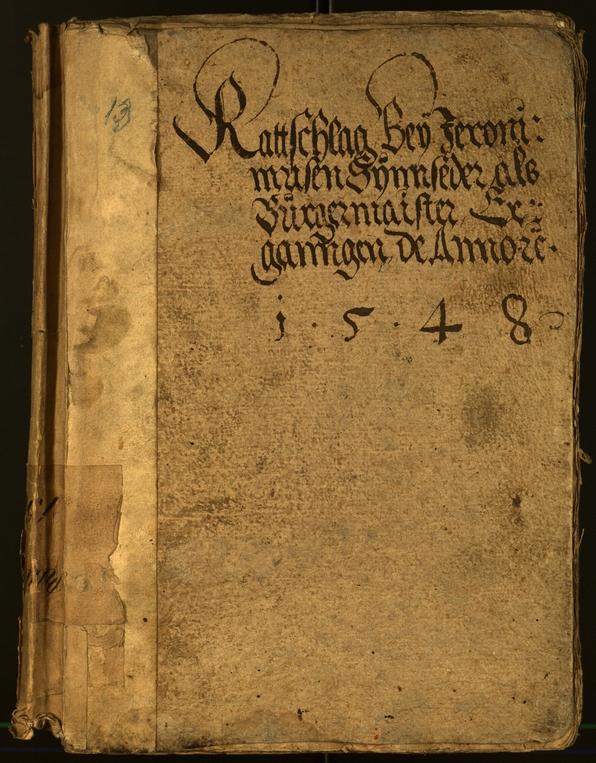 13
Rattschlag Bey Jeroni:
musen Synnseder als
Bürgermaister Er:
ganngen de Anno rē.
1 · 5 · 4 · 8